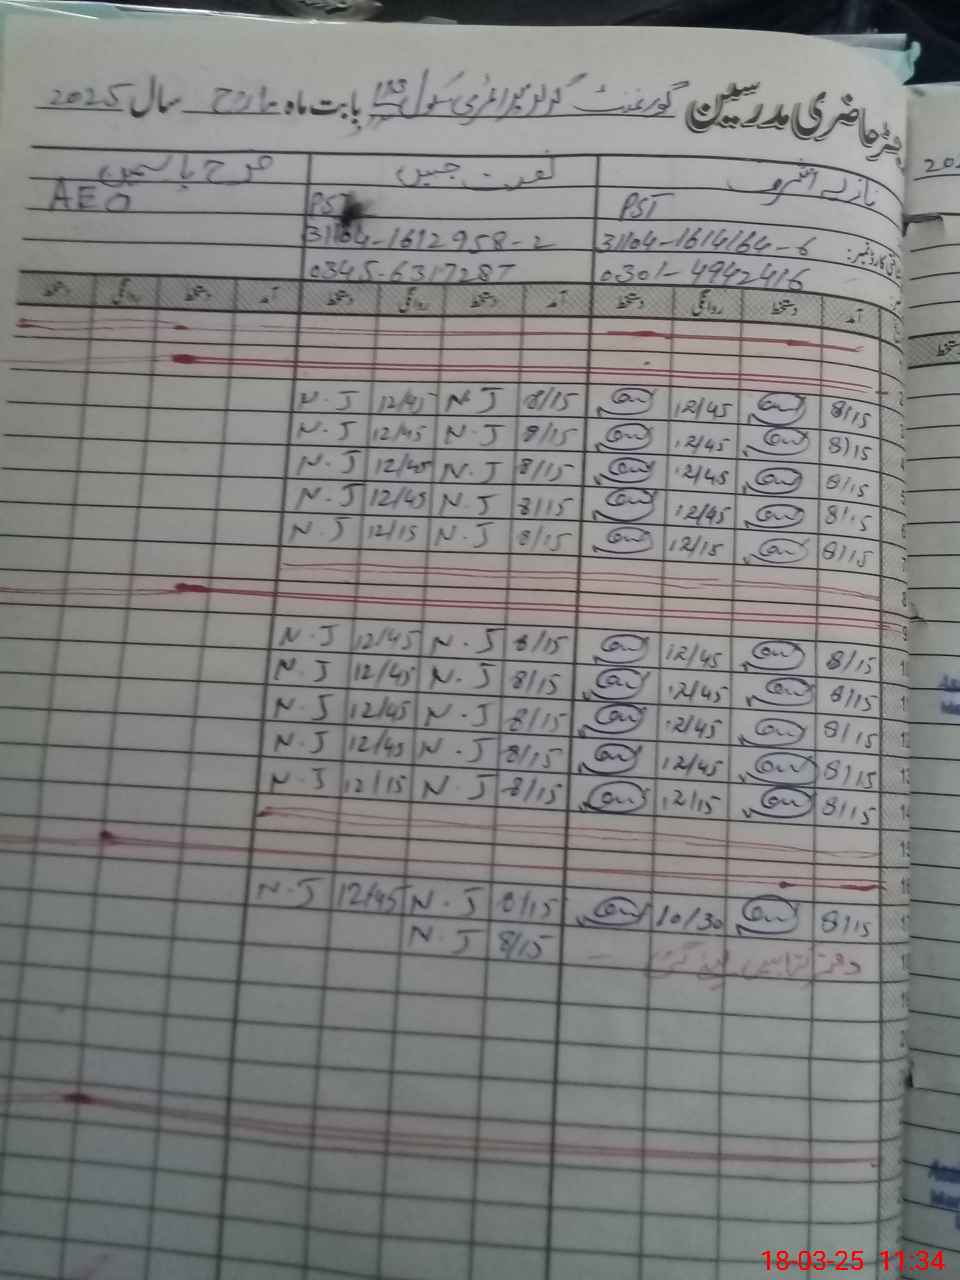 رجسٹر حاضری مدرسین گورنمنٹ گرلز پرائمری سکول بابت ماہ مارچ سال 2025
نازیہ اشرف نصرت جبیں فرح یاسمین
PST PST AEO
31104-1614164-6 31104-1612958-2
0301-4942416 0345-6317287
آمد دستخط روانگی دستخط آمد دستخط روانگی دستخط آمد دستخط روانگی دستخط
2
8/15 12/45 8/15 N.J 12/45 N.J
4 8/15 12/45 8/15 N.J 12/45 N.J
5 8/15 12/45 8/15 N.J 12/45 N.J
6 8/15 12/45 8/15 N.J 12/45 N.J
7 8/15 12/15 8/15 N.J 12/15 N.J
8
9
10 8/15 12/45 8/15 N.J 12/45 N.J
11 8/15 12/45 8/15 N.J 12/45 N.J
12 8/15 12/45 8/15 N.J 12/45 N.J
13 8/15 12/45 8/15 N.J 12/45 N.J
14 8/15 12/15 8/15 N.J 12/15 N.J
15
16
17 8/15 10/30 8/15 N.J 12/45 N.J
18 8/15 N.J
18-03-25 11:34